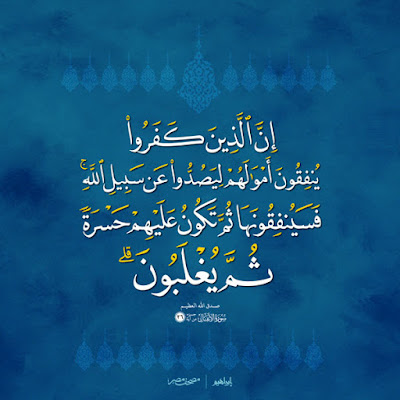 إِنَّ ٱلَّذِينَ كَفَرُوا۟
يُنفِقُونَ أَمْوَٰلَهُمْ لِيَصُدُّوا۟ عَن سَبِيلِ ٱللَّهِ ۚ
فَسَيُنفِقُونَهَا ثُمَّ تَكُونُ عَلَيْهِمْ حَسْرَةً
ثُمَّ يُغْلَبُونَ ۗ
صدق الله العظيم
سورة الأنفال من آية ٣٦
إبراهيم | مصحف مصر